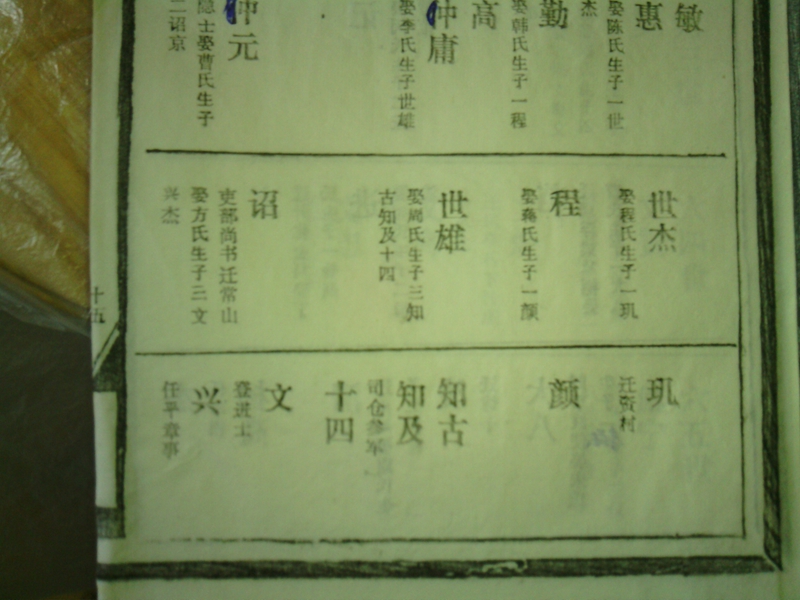 敏
惠
娶陈氏生子一世
杰
勤
娶韩氏生子一程
高
仲庸
娶李氏生子世雄
仲元
隐士娶曹氏生子
二诏京
世杰
娶程氏生子一玑
程
娶龚氏生子一颜
世雄
娶周氏生子三知
古知及十四
诏
吏部尚书迁常山
娶方氏生子二文
兴杰
玑
迁贡村
颜
知古
知及
司仓参军
十四
文
登进士
兴
任平章事
十五